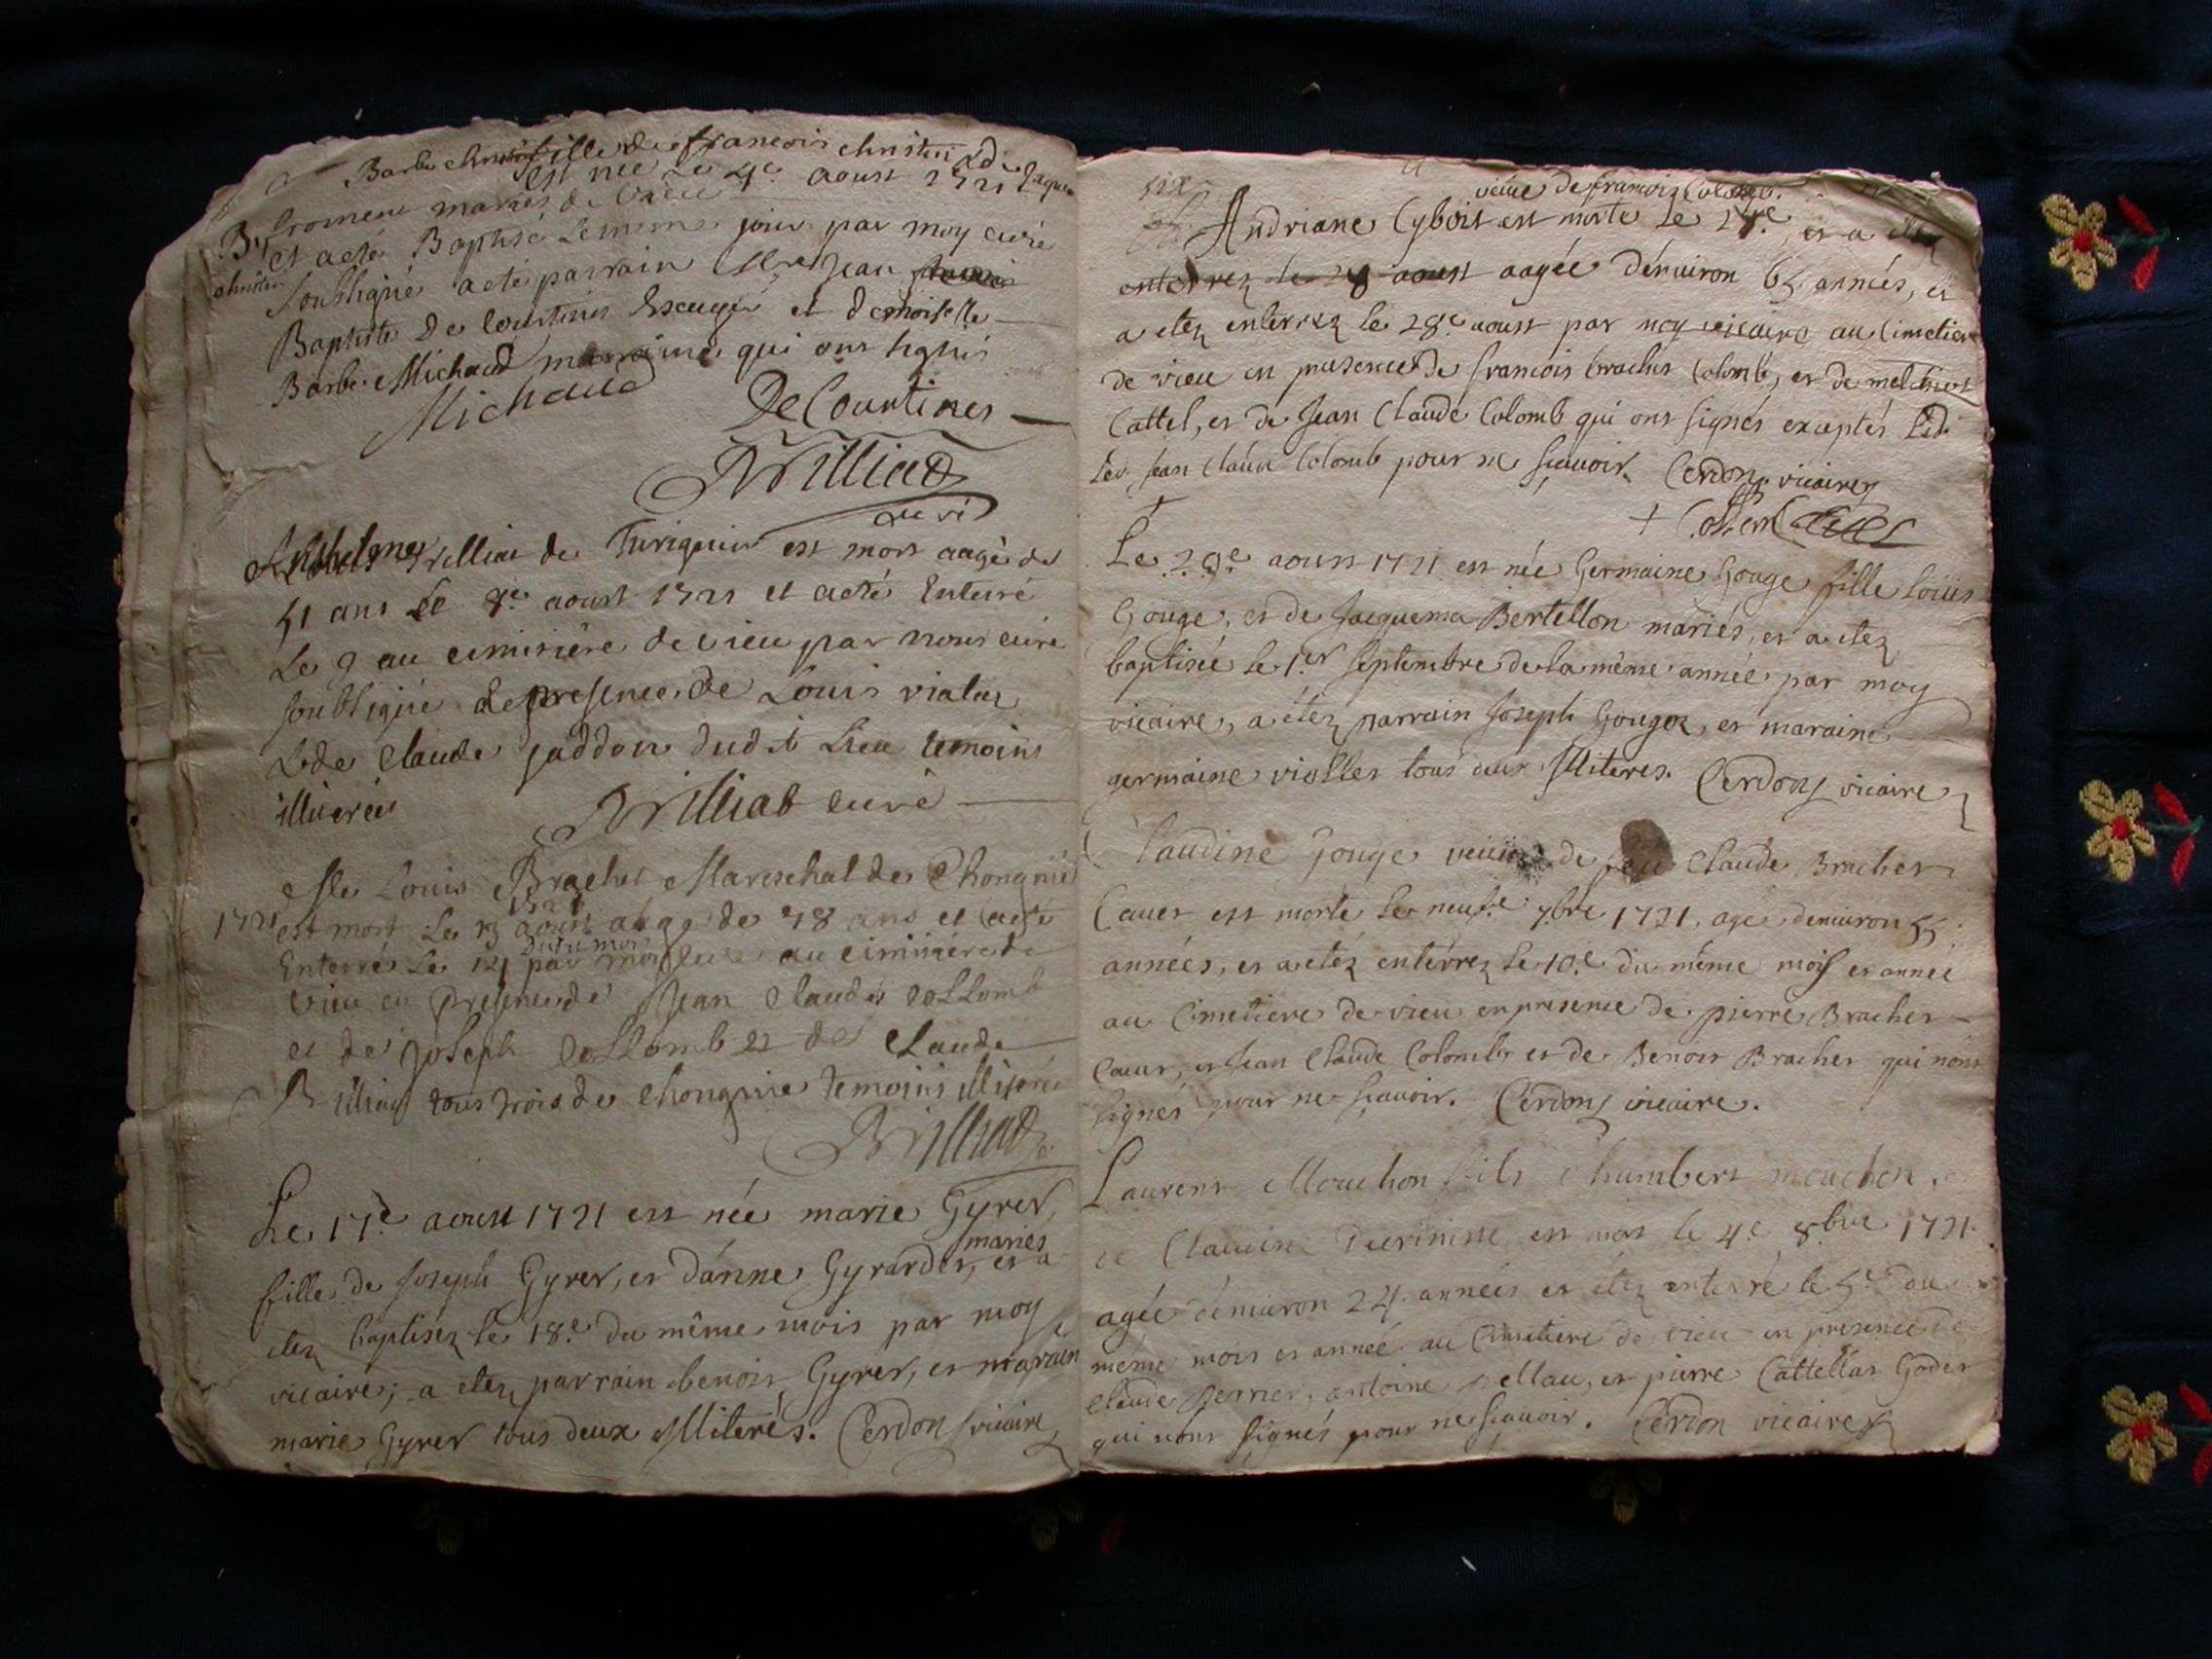 Barbe christin fille de francois christin & de
est née Le 4e aoust 1721 Jaque
fromene mariés de Vieu
et acté Baptisé Le meme jour par moy curé
christin
soussigné acté parrain Jean
Baptiste De Courtines Escuyer et demoiselle
Barbe Michaud marraine qui ont signés
Michaud
De Courtines
Brilliad
curé
Anthelme Brilliat de est mort aagé de
51 ans Le 8e aoust 1721 et acté Enterré
Le 9 au cimitière de vieu par nous curé
soubsigné de presence de Louis viala
& de Claude jaddon dudit Lieu temoins
illiterées
Brilliat curé
Me Louis Brachet Mareschal de Chongnie
1721 est mort Le 13 aoust aage de 78 ans et acté
dudit mois
Enterré Le 14 par au cimitière de
vieu en presence de Jean Claude Collomb
et de joseph Collomb & de Claude
Brilliat tous trois de Chongnie temoins illiterés
Brilliad
Le 17e aoust 1721 est née marie Gyrer,
mariés
fille de Joseph Gyrer, et d'anne Gyrardet, et a
etez baptisez le 18e du même mois par moy
vicaire; a etez parrain benoit Gyrer, et maraine
marie Gyrer tous deux illiterés. Cerdon vicaire
six
veuve de francois Colomb.
Andriane Cybois est morte Le 27e, et a etez
enterrez le 28 aoust aagée dénuiron 65 années, et
a etez enterrez le 28e aoust par moy vicaire au Cimetiere
de vieu en presence de francois brachet Colomb, et de melchior
Cattel, et de Jean Claude Colomb qui ont signés exceptés Led.
Led. Jean Claude Colomb pour ne sçauoir. Cerdon vicaire
+
Le 29e aoust 1721 est née Germaine Gouge fille Loüis
Gouge, et de Jacquema Bertellon mariés, et a etez
baptisée le 1er septembre de la même année par moy
vicaire, a étez parrain Joseph Gouge, et maraine
germaine viollet tous deux illiteres. Cerdon vicaire
Claudine Gouge veuue de feu Claude Brachet
Cauet est morte le neufe 7bre 1721, agé denuiron 55
années, et a etéz entérrez le 10e du même mois et année
au Cimetiere de vieu en presence de pierre Brachet
Cauet, et Jean Claude Colomb et de Benoit Brachet qui nont
signés pour ne sçauoir. Cerdon vicaire.
Laurent Mouchon fils d'humbert mouchon, et
de Claudine est mort le 4e 8bre 1721.
agée dénuiron 24 années et étez enterré le 5e du
même mois et année au Cimetiere de vieu en presence de
Claude perrier, antoine et pierre Cattellas Godet
qui nont signés pour ne sçauoir. Cerdon vicaire